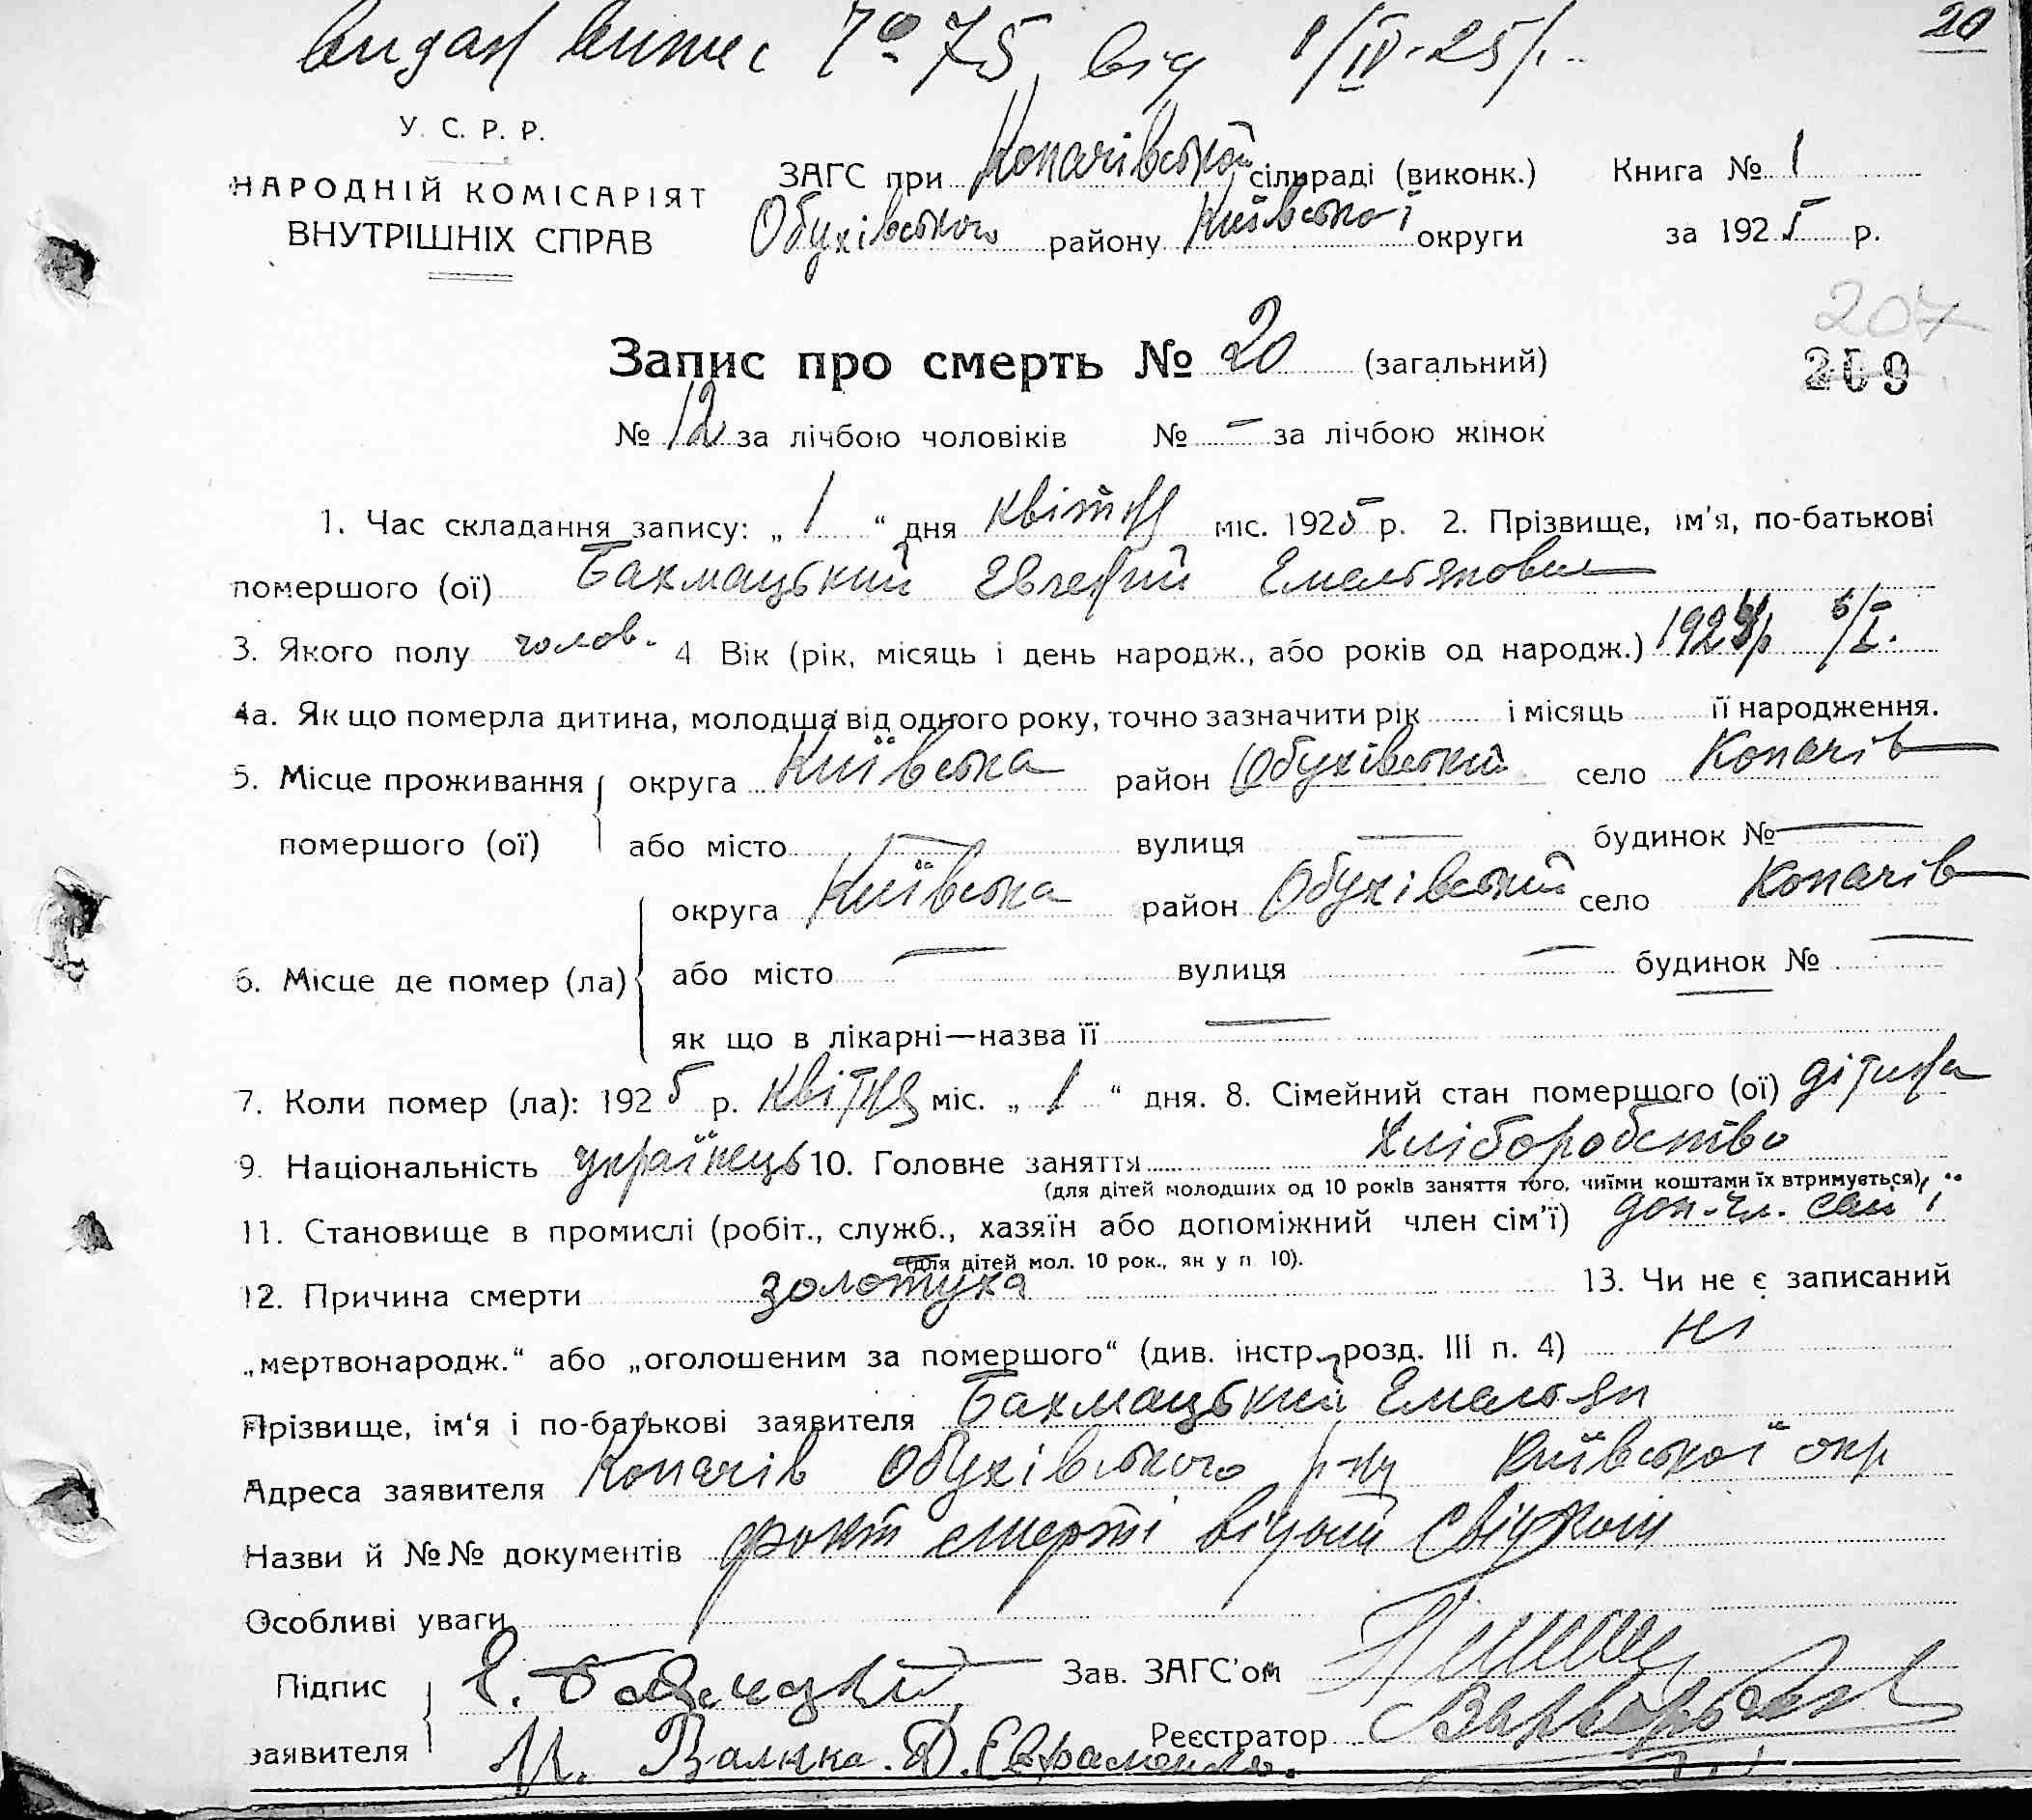 видан витяг № 75 від 1/IV-25 р.
20
У. С. Р. Р.
НАРОДНІЙ КОМІСАРІЯТ
ВНУТРІШНІХ СПРАВ
ЗАГС при Копачівській сільраді (виконк.)
Обухівського району Київської округи
Книга № 1
за 1925 р.
207
209
Запис про смерть № 20 (загальний)
№ 12 за лічбою чоловіків № — за лічбою жінок
1. Час складання запису: „ 1 “ дня квітня міс. 1925 р. 2. Прізвище, ім'я, по-батькові
помершого (ої) Бахмацький Емельянович
3. Якого полу чолов. 4 Вік (рік, місяць і день народж., або років од народж.)
4а. Як що померла дитина, молодша від одного року, точно зазначити рік і місяць її народження.
5. Місце проживання округа Київська район Обухівський село Копачів
помершого (ої) або місто — вулиця — будинок № —
округа Київська район Обухівський село Копачів
6. Місце де помер (ла) або місто — вулиця — будинок № —
як що в лікарні—назва її —
7. Коли помер (ла): 1925 р. квітня міс. „ 1 “ дня. 8. Сімейний стан помершого (ої) дітина
9. Національність українець 10. Головне заняття хліборобство
(для дітей молодших од 10 років заняття того, чиїми коштами їх втримується)
11. Становище в промислі (робіт., служб., хазяїн або допоміжний член сім'ї) доп. чл. сім'ї
(для дітей мол. 10 рок., як у п 10).
12. Причина смерти золотуха 13. Чи не є записаний
„мертвонародж.“ або „оголошеним за помершого“ (див. інстр. розд. III п. 4) ні
Прізвище, ім'я і по-батькові заявителя Бахмацький Емельян
Адреса заявителя Копачів Обухівського р-ну Київської окр
Назви й №№ документів факт смерті відомий свідкам
Особливі уваги
Підпис
заявителя
Зав. ЗАГС'ом
Реєстратор